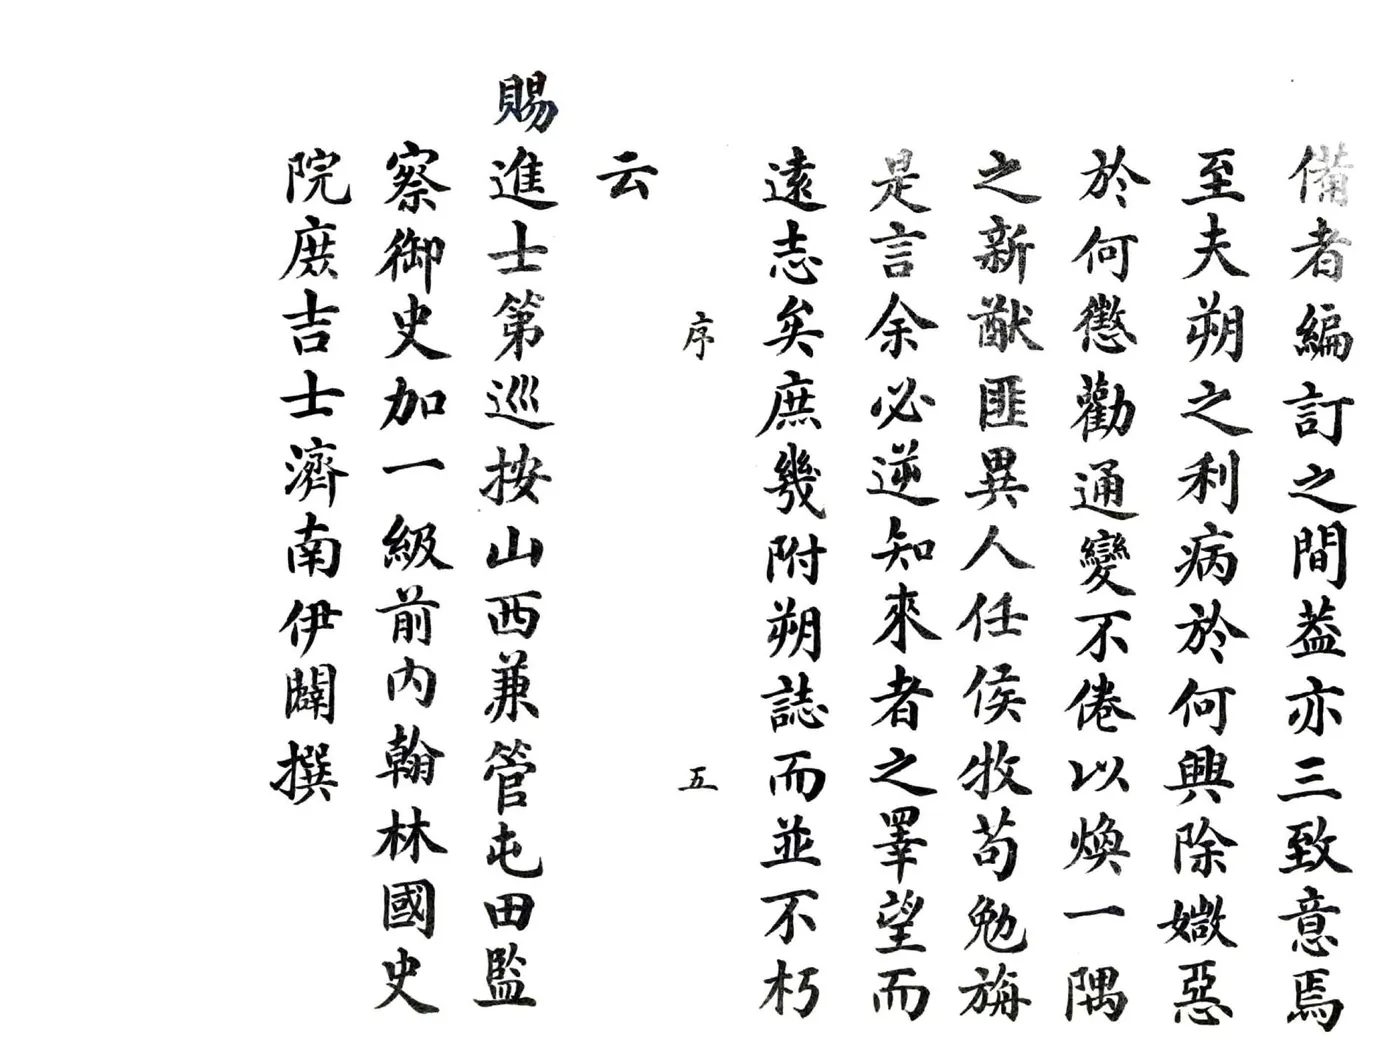 備者編訂之間葢亦三致意焉
至夫朔之利病於何興除媺惡
於何懲勸通變不倦以煥一隅
之新猷匪異人任侯牧苟勉旃
是言余必逆知來者之睪望而
遠志矣庶幾附朔誌而並不朽
云
序 五
賜進士第巡按山西兼管屯田監
察御史加一級前內翰林國史
院庻吉士濟南伊闢撰